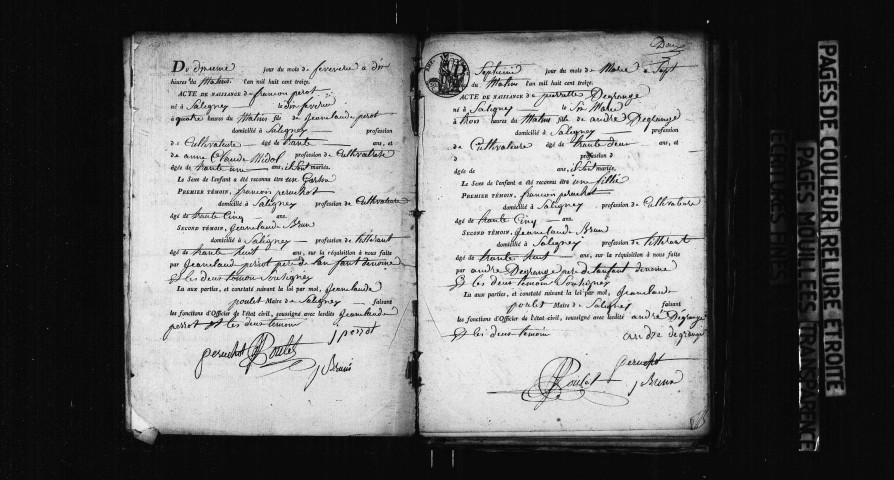 Du dixieme jour du mois de feverie a dix
heures du Matin l'an mil huit cent treize.
ACTE DE NAISSANCE de francois perot
né à Saligney le dix feverie
à quatre heures du Matin fils de Jeanclaude perot
domicilié à Saligney profession
de Cultivateure âgé de trante ans, et
de anne Claude Midol profession de Cultivatrise
âgée de trante un ans, il sont mariés.
Le Sexe de l'enfant a été reconnu être un Garson
PREMIER TÉMOIN, francois peruchot
domicilié à Saligney profession de Cultivateure
âgé de trante Cinq ans.
SECOND TÉMOIN, Jeanclaude Brun
domicilié à Saligney profession de titterant
âgé de trante huit ans, sur la réquisition à nous faite
par Jeanclaude periot pere de
Et les deux temoin Soutigney
Lu aux parties, et constaté suivant la loi par moi, Jeanclaude
poulet Maire de Saligney faisant
les fonctions d'Officier de l'état civil, soussigné avec lesdits Jeanclaude
perrot et les deux temoin
J perrot
peruchot Poulet
J Brun
Septieme jour du mois de Mars a Sept
du Matin l'an mil huit cent treize.
ACTE DE NAISSANCE de pierrette Degrange
né à Saligney le Six Mars
à trois heures du Matin fils de andré Degrange
domicilié à Saligney profession
de Cultivateure âgé de trante deux ans, et
d profession d
âgée de ans, il sont mariés.
Le Sexe de l'enfant a été reconnu être une fille
PREMIER TÉMOIN, francois peruchot
domicilié à Saligney profession de Cultivateure
âgé de trante Cinq ans.
SECOND TÉMOIN, Jeanclaude Brun
domicilié à Saligney profession de titterant
âgé de trante huit ans, sur la réquisition à nous faite
par andré Degrange pere de
Et les deux temoin Soutigney
Lu aux parties, et constaté suivant la loi par moi, Jeanclaude
poulet Maire de Saligney faisant
les fonctions d'Officier de l'état civil, soussigné avec lesdits andré Degrange
Et les deux temoin andre degrange
peruchot
Poulet J Brun
PAGES DE COULEUR
RELIURE ETROITE
PAGES MOUILLEES
TRANSPARENCE